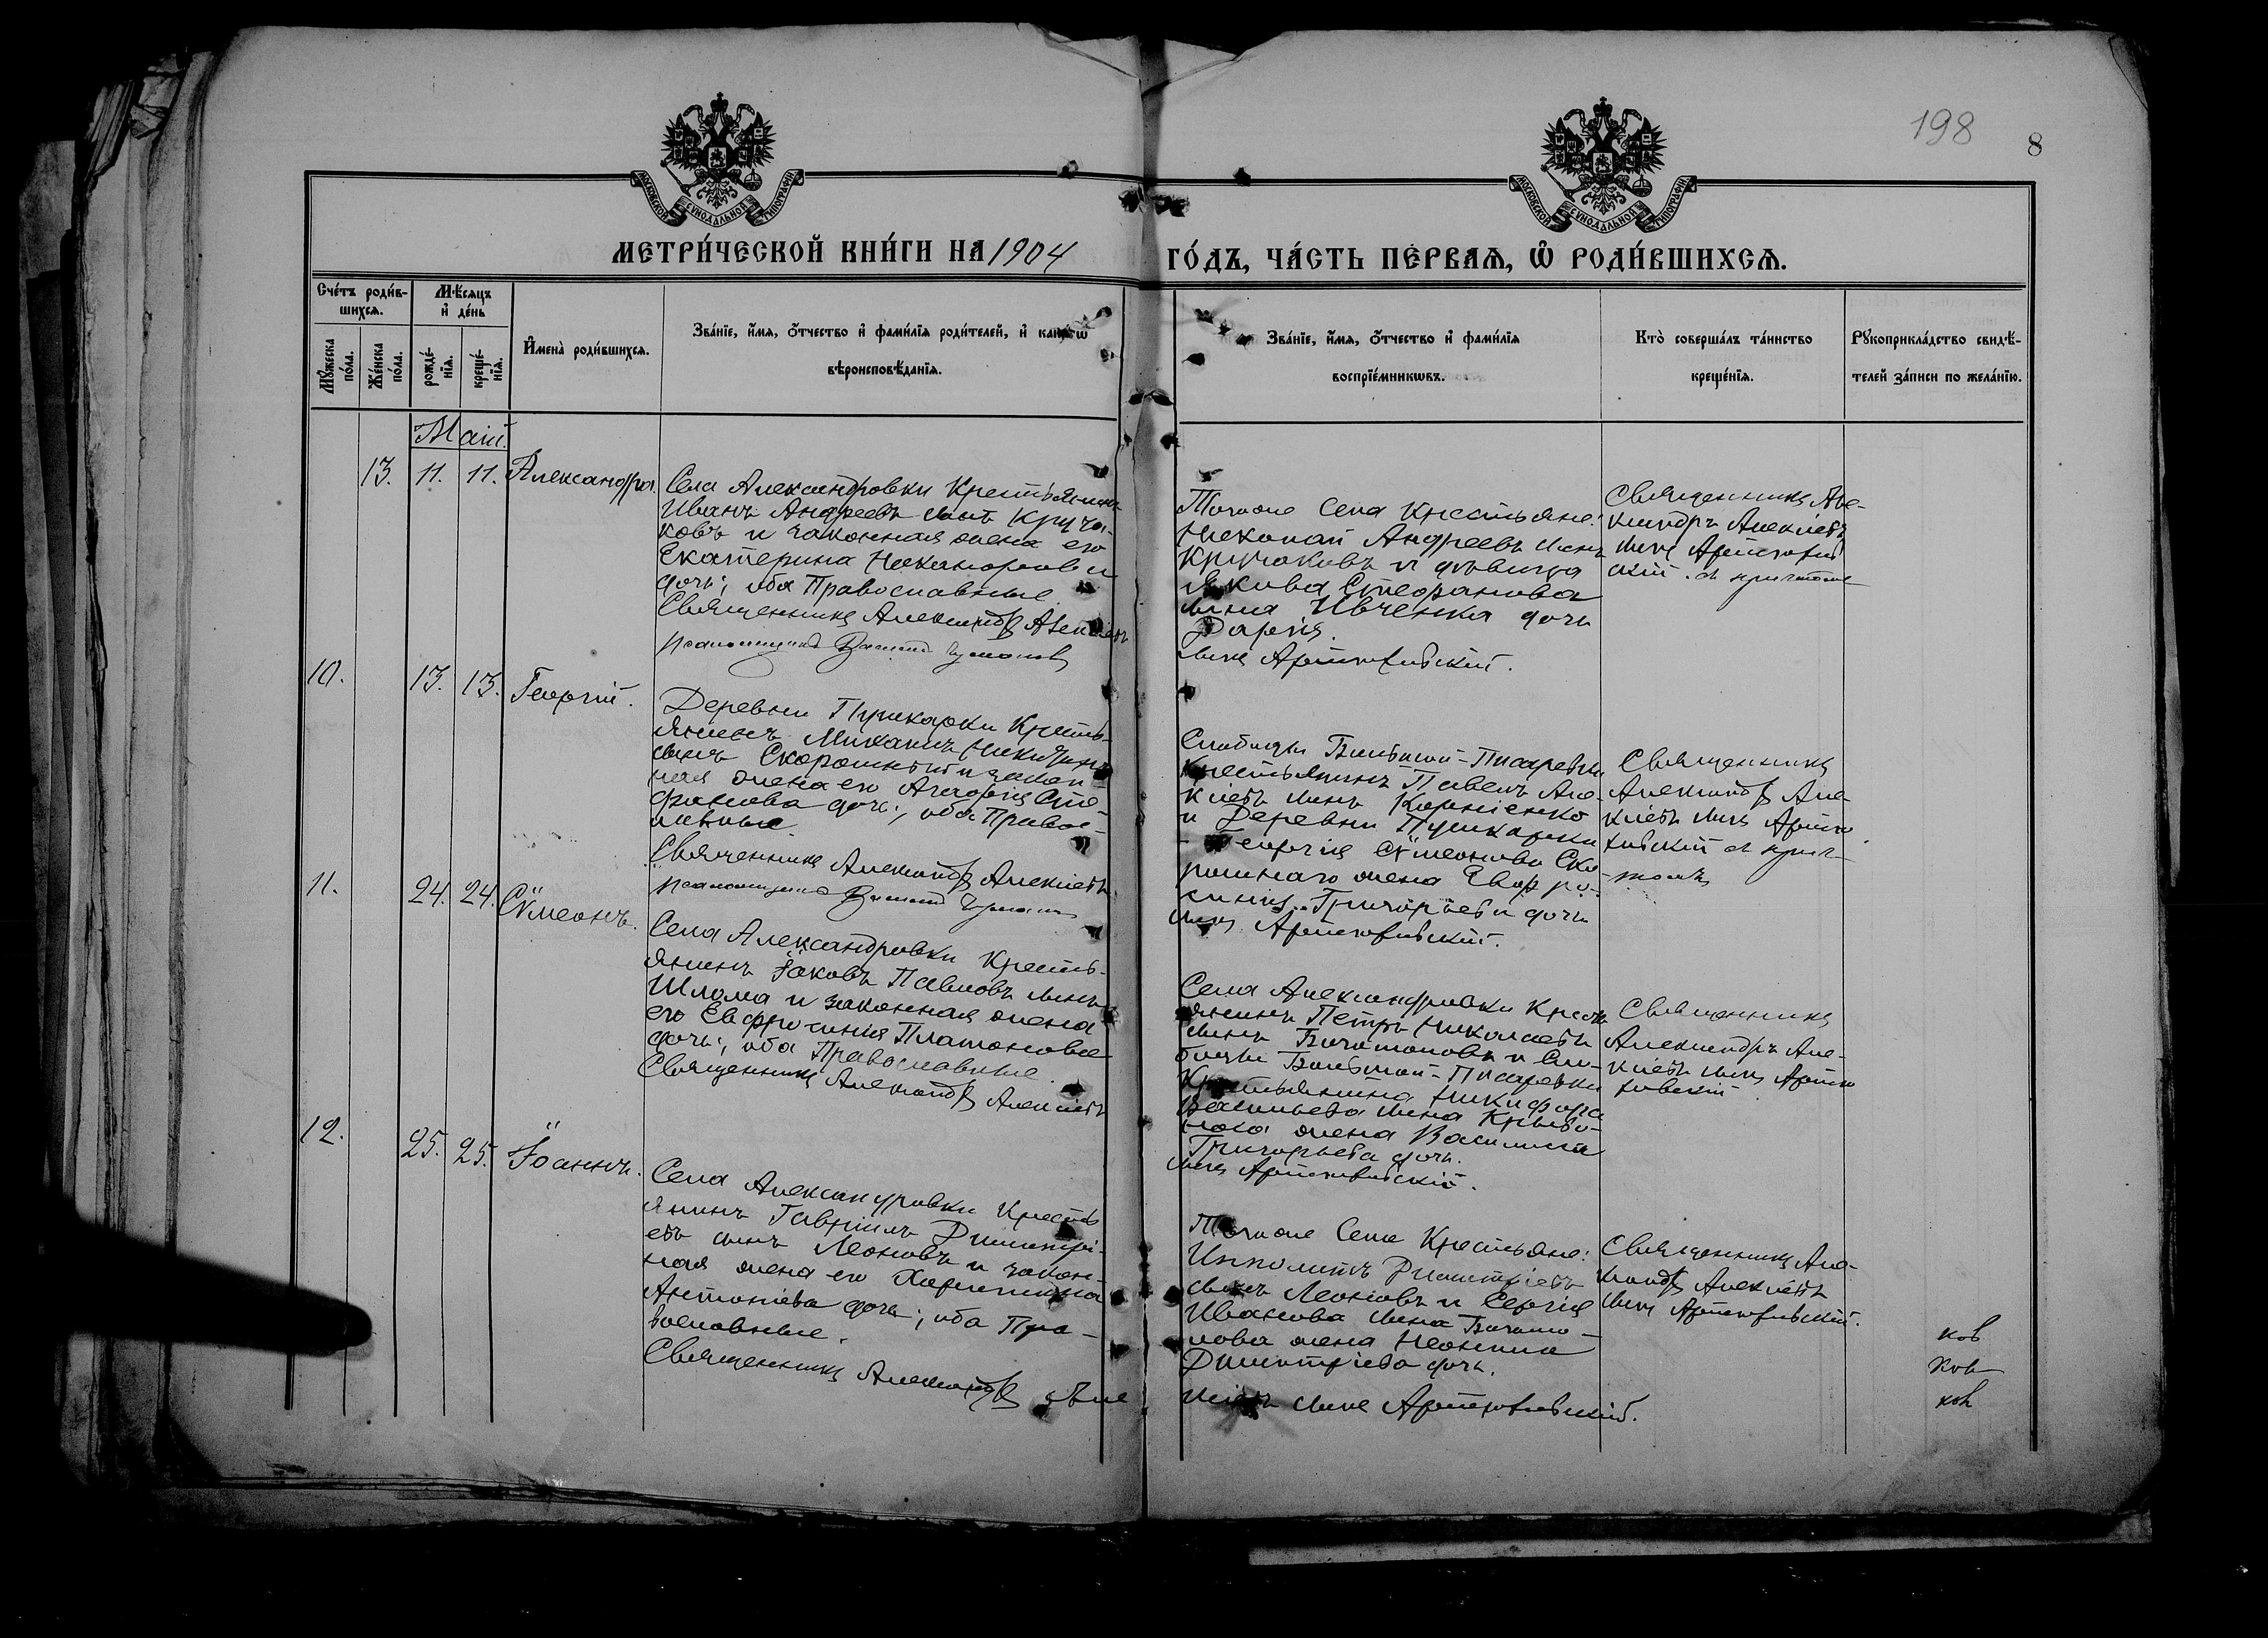 198
8
МОСКОВСКОЙ СѴНОДАЛЬНОЙ ТИПОГРАФІИ
МОСКОВСКОЙ СѴНОДАЛЬНОЙ ТИПОГРАФІИ
МЕТРИ́ЧЕСКОЙ КНИ́ГИ НА 1904
ГО́ДЪ, ЧА́СТЬ ПЕ́РВАѦ, Ѽ РОДИ́ВШИХСѦ.
Сче́тъ роди́в-
шихсѧ.
Мѣ́сяцъ
и҆ де́нь
Мꙋ́жеска
по́ла.
Же́нска
по́ла.
рожде́-
нїѧ.
креще́-
нїѧ.
И҆мена̀ роди́вшихсѧ.
Зва́нїе, и҆́мѧ, ѻ҆́тчество и҆ фами́лїѧ роди́телей, и҆ како́гѡ
вѣроисповѣ́данїѧ.
Зва́нїе, и҆́мѧ, ѻ҆́тчество и҆ фами́лїѧ
воспрїе́мникѡвъ.
Кто̀ соверша́лъ та́инство
креще́нїѧ.
Рꙋкоприкла́дство свидѣ́-
телей за́писи по жела́нїю.
Маій.
13. 11. 11. Александра.
Села Александровки Крестьянинъ
Иванъ Андреевъ сынъ Круча-
ковъ и законная жена его
Екатерина Никанорова
дочь; оба Православные.
Священникъ Александръ Алексіевъ
Псаломщикъ
Тогоже Села Крестьяне:
Николай Андреевъ сынъ
Кручаковъ и девица
Якова Стефанова
сына Ивченка дочь
Дарія.
сынъ Артюховскій.
Священникъ Але-
ксандръ Алексіевъ
сынъ Артюхов
скій. съ причтомъ
10. 13. 13. Георгій.
Деревни Пушкарки Кресть-
янинъ Михаилъ Никитинъ
сынъ Скорошный и закон
ная жена его Агафія Сте-
фанова дочь; оба Право-
славные.
Священникъ Александръ Алексіевъ
Псаломщикъ
Слободы Большой-Писаревки
Крестьянинъ Павелъ Але-
ксіевъ сынъ Корніенко
и Деревни Пушкарки
Георгія Сѵмеонова Ско-
рошнаго жена Евфро-
синія Григорьева дочь
сынъ Артюховскій.
Священникъ
Александръ Але-
ксіевъ сынъ Артюхо
ховскій съ прич-
томъ
11. 24. 24. Сѵмеонъ.
Села Александровки Кресть-
янинъ Іаковъ Павловъ сынъ
Шлома и законная жена
его Евфросинія Платонова
дочь; оба Православные.
Священникъ Александръ Алексіевъ
Села Александровки Кресть
янинъ Петръ Николаевъ
сынъ Богомоловъ и Сло-
боды Большой-Писаревки
Крестьянина Никифора
Васильева сына Криво-
носа жена Василиса
Григорьева дочь.
сынъ Артюховскій.
Священникъ
Александръ Але-
ксіевъ сынъ Артюхо
ховскій
12. 25. 25. Іоаннъ.
Села Александровки Кресть
янинъ Гавріилъ Димитрі-
евъ сынъ Леоновъ и закон-
ная жена его Харитина
Антоніева дочь; оба Пра-
вославные.
Священникъ Александръ Але
Тогоже Села Крестьяне:
Ипполитъ Димитріевъ
сынъ Леоновъ и Сергія
Иванова сына Богомо-
лова жена Неонила
Димитріева дочь.
ксіевъ сынъ Артюховскій.
Священникъ Але-
ксандръ Алексіевъ
сынъ Артюховскій.
ков
ков
ков